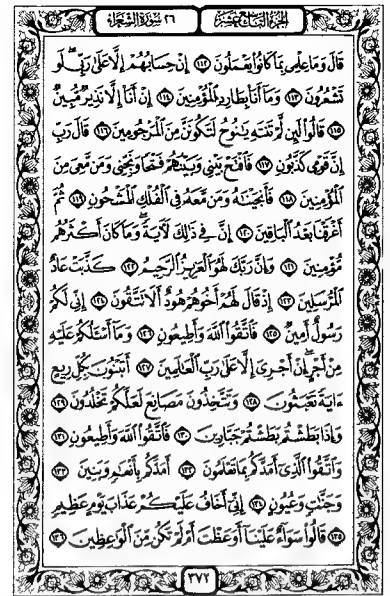 الجزء التاسع عشر ٢٦ سورة الشعراء
قَالَ وَمَا عِلْمِى بِمَا كَانُوا۟ يَعْمَلُونَ ١١٢ إِنْ حِسَابُهُمْ إِلَّا عَلَىٰ رَبِّى ۖ لَوْ
تَشْعُرُونَ ١١٣ وَمَآ أَنَا۠ بِطَارِدِ ٱلْمُؤْمِنِينَ ١١٤ إِنْ أَنَا۠ إِلَّا نَذِيرٌ مُّبِينٌ
١١٥ قَالُوا۟ لَئِن لَّمْ تَنتَهِ يَـٰنُوحُ لَتَكُونَنَّ مِنَ ٱلْمَرْجُومِينَ ١١٦ قَالَ رَبِّ
إِنَّ قَوْمِى كَذَّبُونِ ١١٧ فَٱفْتَحْ بَيْنِى وَبَيْنَهُمْ فَتْحًا وَنَجِّنِى وَمَن مَّعِىَ مِنَ
ٱلْمُؤْمِنِينَ ١١٨ فَأَنجَيْنَـٰهُ وَمَن مَّعَهُۥ فِى ٱلْفُلْكِ ٱلْمَشْحُونِ ١١٩ ثُمَّ
أَغْرَقْنَا بَعْدُ ٱلْبَاقِينَ ١٢٠ إِنَّ فِى ذَٰلِكَ لَـَٔايَةً ۖ وَمَا كَانَ أَكْثَرُهُم
مُّؤْمِنِينَ ١٢١ وَإِنَّ رَبَّكَ لَهُوَ ٱلْعَزِيزُ ٱلرَّحِيمُ ١٢٢ كَذَّبَتْ عَادٌ
ٱلْمُرْسَلِينَ ١٢٣ إِذْ قَالَ لَهُمْ أَخُوهُمْ هُودٌ أَلَا تَتَّقُونَ ١٢٤ إِنِّى لَكُمْ
رَسُولٌ أَمِينٌ ١٢٥ فَٱتَّقُوا۟ ٱللَّهَ وَأَطِيعُونِ ١٢٦ وَمَآ أَسْـَٔلُكُمْ عَلَيْهِ
مِنْ أَجْرٍ ۖ إِنْ أَجْرِىَ إِلَّا عَلَىٰ رَبِّ ٱلْعَـٰلَمِينَ ١٢٧ أَتَبْنُونَ بِكُلِّ رِيعٍ
ءَايَةً تَعْبَثُونَ ١٢٨ وَتَتَّخِذُونَ مَصَانِعَ لَعَلَّكُمْ تَخْلُدُونَ ١٢٩
وَإِذَا بَطَشْتُم بَطَشْتُمْ جَبَّارِينَ ١٣٠ فَٱتَّقُوا۟ ٱللَّهَ وَأَطِيعُونِ ١٣١
وَٱتَّقُوا۟ ٱلَّذِىٓ أَمَدَّكُم بِمَا تَعْلَمُونَ ١٣٢ أَمَدَّكُم بِأَنْعَـٰمٍ وَبَنِينَ ١٣٣
وَجَنَّـٰتٍ وَعُيُونٍ ١٣٤ إِنِّىٓ أَخَافُ عَلَيْكُمْ عَذَابَ يَوْمٍ عَظِيمٍ
١٣٥ قَالُوا۟ سَوَآءٌ عَلَيْنَآ أَوَعَظْتَ أَمْ لَمْ تَكُن مِّنَ ٱلْوَٰعِظِينَ ١٣٦
٣٧٢